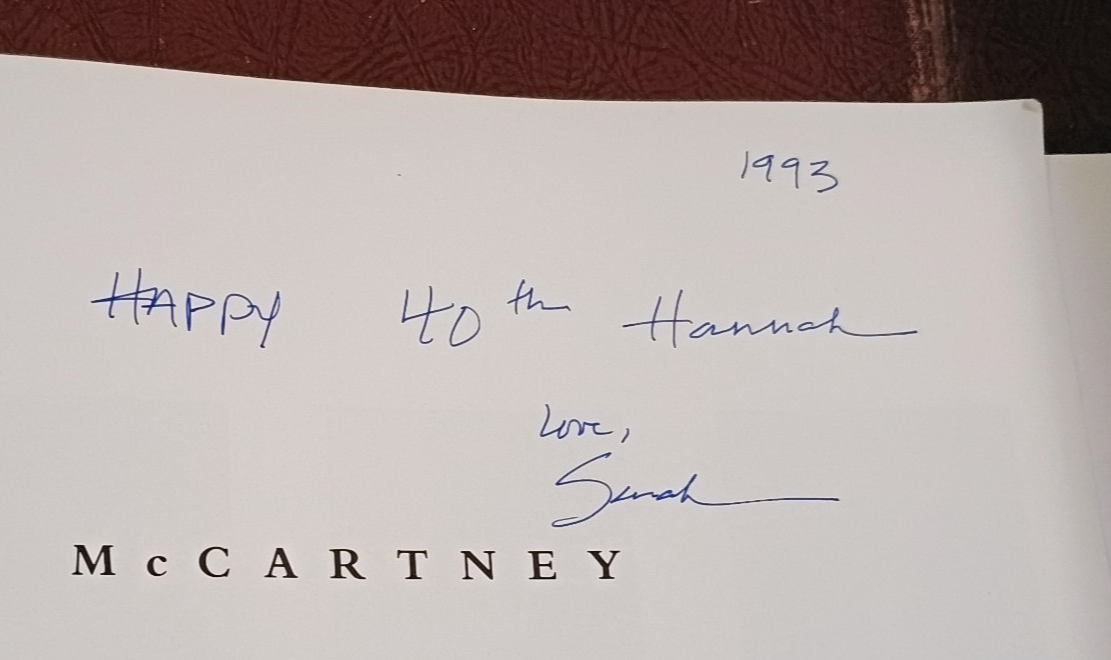 1993
HAPPY 40th Hannah
Love,
Sarah
McCARTNEY